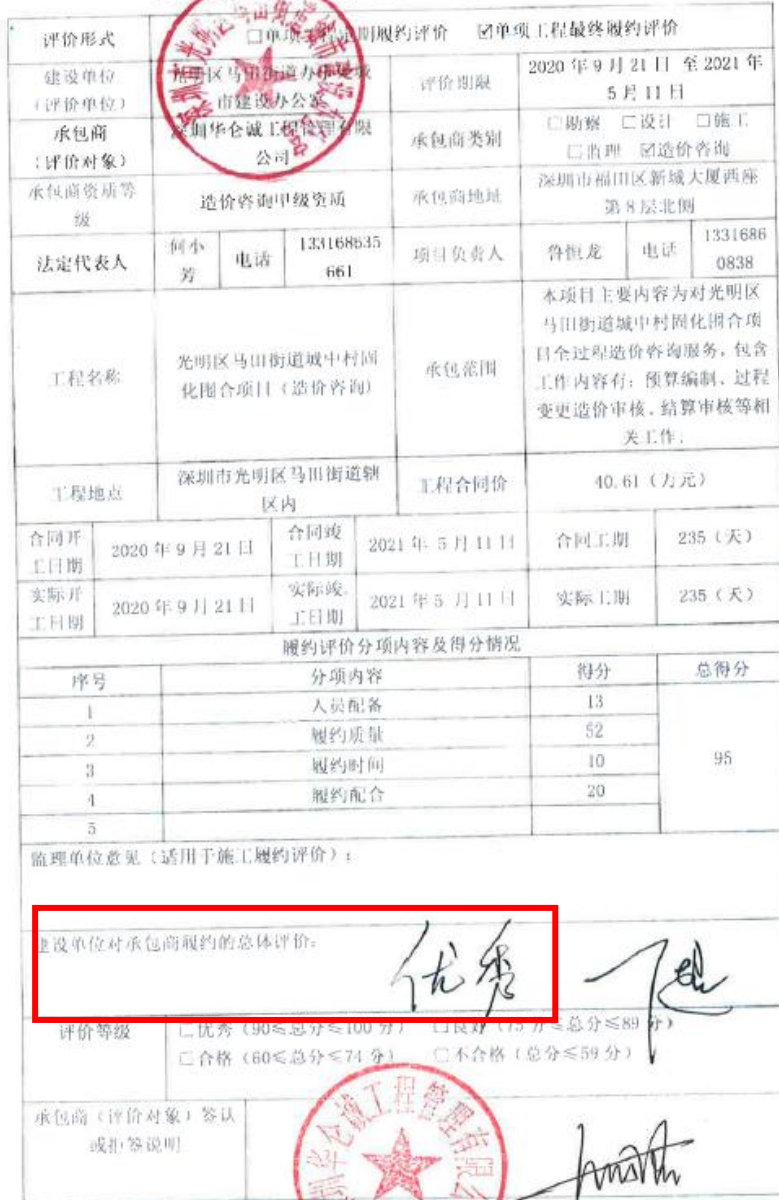 评价形式 □单项工程定期履约评价 ☑单项工程最终履约评价
建设单位
(评价单位)
光明区马田街道办事处城
市建设办公室
评价期限
2020年9月21日 至2021年
5月11日
承包商
(评价对象)
深圳华仑诚工程管理有限
公司
承包商类别
□勘察 □设计 □施工
□监理 ☑造价咨询
承包商资质等
级
造价咨询甲级资质
承包商地址
深圳市福田区新城大厦西座
第8层北侧
法定代表人
何小
芳
电话
133168635
661
项目负责人
鲁恒龙
电话
1331686
0838
工程名称
光明区马田街道城中村固
化围合项目(造价咨询)
承包范围
本项目主要内容为对光明区
马田街道城中村固化围合项
目全过程造价咨询服务,包含
工作内容有:预算编制、过程
变更造价审核、结算审核等相
关工作。
工程地点
深圳市光明区马田街道辖
区内
工程合同价
40.61(万元)
合同开
工日期
2020年9月21日
合同竣
工日期
2021年5月11日
合同工期
235(天)
实际开
工日期
2020年9月21日
实际竣
工日期
2021年5月11日
实际工期
235(天)
履约评价分项内容及得分情况
序号 分项内容 得分 总得分
1 人员配备 13
2 履约质量 52
3 履约时间 10
4 履约配合 20
5
95
监理单位意见(适用于施工履约评价):
建设单位对承包商履约的总体评价:
优秀
评价等级
□优秀(90≤总分≤100分) □良好(75分≤总分≤89分)
□合格(60≤总分≤74分) □不合格(总分≤59分)
承包商(评价对象)签认
或拒签说明
圳华仑诚工程管理有限公